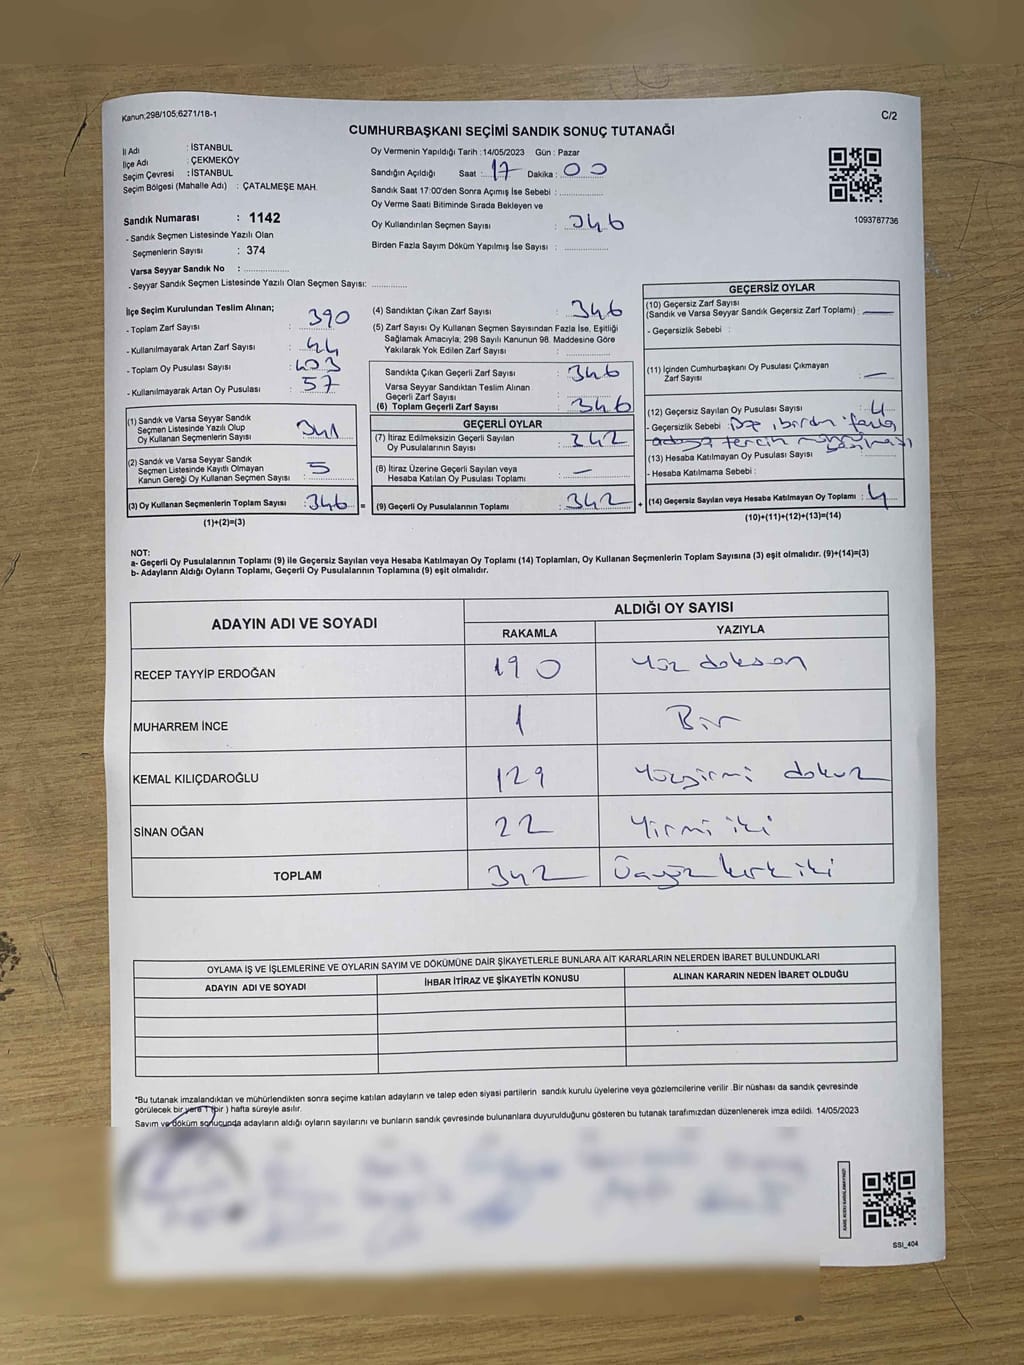 Kanun;298/105;6271/18-1
C/2
CUMHURBAŞKANI SEÇİMİ SANDIK SONUÇ TUTANAĞI
İl Adı : İSTANBUL
İlçe Adı : ÇEKMEKÖY
Seçim Çevresi : İSTANBUL
Seçim Bölgesi (Mahalle Adı) : ÇATALMEŞE MAH.
Sandık Numarası : 1142
- Sandık Seçmen Listesinde Yazılı Olan
Seçmenlerin Sayısı : 374
Varsa Seyyar Sandık No : ................
- Seyyar Sandık Seçmen Listesinde Yazılı Olan Seçmen Sayısı: ............
Oy Vermenin Yapıldığı Tarih : 14/05/2023 Gün : Pazar
Sandığın Açıldığı Saat : 17 Dakika : 00
Sandık Saat 17:00'den Sonra Açımış İse Sebebi : ................
Oy Verme Saati Bitiminde Sırada Bekleyen ve
Oy Kullandırılan Seçmen Sayısı : 346
Birden Fazla Sayım Döküm Yapılmış İse Sayısı : ............
1093787736
İlçe Seçim Kurulundan Teslim Alınan;
- Toplam Zarf Sayısı : 390
- Kullanılmayarak Artan Zarf Sayısı : 44
- Toplam Oy Pusulası Sayısı : 403
- Kullanılmayarak Artan Oy Pusulası : 57
(1) Sandık ve Varsa Seyyar Sandık
Seçmen Listesinde Yazılı Olup
Oy Kullanan Seçmenlerin Sayısı : 341
(2) Sandık ve Varsa Seyyar Sandık
Seçmen Listesinde Kayıtlı Olmayan
Kanun Gereği Oy Kullanan Seçmen Sayısı : 5
(3) Oy Kullanan Seçmenlerin Toplam Sayısı : 346
(1)+(2)=(3)
(4) Sandıktan Çıkan Zarf Sayısı : 346
(5) Zarf Sayısı Oy Kullanan Seçmen Sayısından Fazla İse, Eşitliği
Sağlamak Amacıyla; 298 Sayılı Kanunun 98. Maddesine Göre
Yakılarak Yok Edilen Zarf Sayısı : ............
Sandıkta Çıkan Geçerli Zarf Sayısı : 346
Varsa Seyyar Sandıktan Teslim Alınan
Geçerli Zarf Sayısı : ............
(6) Toplam Geçerli Zarf Sayısı : 346
=
GEÇERLİ OYLAR
(7) İtiraz Edilmeksizin Geçerli Sayılan
Oy Pusulasının Sayısı : 342
(8) İtiraz Üzerine Geçerli Sayılan veya
Hesaba Katılan Oy Pusulası Toplamı : —
(9) Geçerli Oy Pusulalarının Toplamı : 342
+
GEÇERSİZ OYLAR
(10) Geçersiz Zarf Sayısı
(Sandık ve Varsa Seyyar Sandık Geçersiz Zarf Toplamı) : —
- Geçersizlik Sebebi :
(11) İçinden Cumhurbaşkanı Oy Pusulası Çıkmayan
Zarf Sayısı : —
(12) Geçersiz Sayılan Oy Pusulası Sayısı : 4
- Geçersizlik Sebebi : birden fazla
adaya tercih
(13) Hesaba Katılmayan Oy Pusulası Sayısı :
- Hesaba Katılmama Sebebi :
(14) Geçersiz Sayılan veya Hesaba Katılmayan Oy Toplamı : 4
(10)+(11)+(12)+(13)=(14)
NOT:
a- Geçerli Oy Pusulalarının Toplamı (9) ile Geçersiz Sayılan veya Hesaba Katılmayan Oy Toplamı (14) Toplamları, Oy Kullanan Seçmenlerin Toplam Sayısına (3) eşit olmalıdır. (9)+(14)=(3)
b- Adayların Aldığı Oyların Toplamı, Geçerli Oy Pusulalarının Toplamına (9) eşit olmalıdır.
ADAYIN ADI VE SOYADI ALDIĞI OY SAYISI
RAKAMLA YAZIYLA
RECEP TAYYİP ERDOĞAN 190 Yüz doksan
MUHARREM İNCE 1 Bir
KEMAL KILIÇDAROĞLU 129 Yüzyirmi dokuz
SİNAN OĞAN 22 Yirmi iki
TOPLAM 342 Üçyüz kırk iki
OYLAMA İŞ VE İŞLEMLERİNE VE OYLARIN SAYIM VE DÖKÜMÜNE DAİR ŞİKAYETLERLE BUNLARA AİT KARARLARIN NELERDEN İBARET BULUNDUKLARI
ADAYIN ADI VE SOYADI İHBAR İTİRAZ VE ŞİKAYETİN KONUSU ALINAN KARARIN NEDEN İBARET OLDUĞU
*Bu tutanak imzalandıktan ve mühürlendikten sonra seçime katılan adayların ve talep eden siyasi partilerin sandık kurulu üyelerine veya gözlemcilerine verilir .Bir nüshası da sandık çevresinde
görülecek bir yere 1 (bir ) hafta süreyle asılır.
Sayım ve döküm sonucunda adayların aldığı oyların sayılarını ve bunların sandık çevresinde bulunanlara duyurulduğunu gösteren bu tutanak tarafımızdan düzenlenerek imza edildi. 14/05/2023
SSI_404